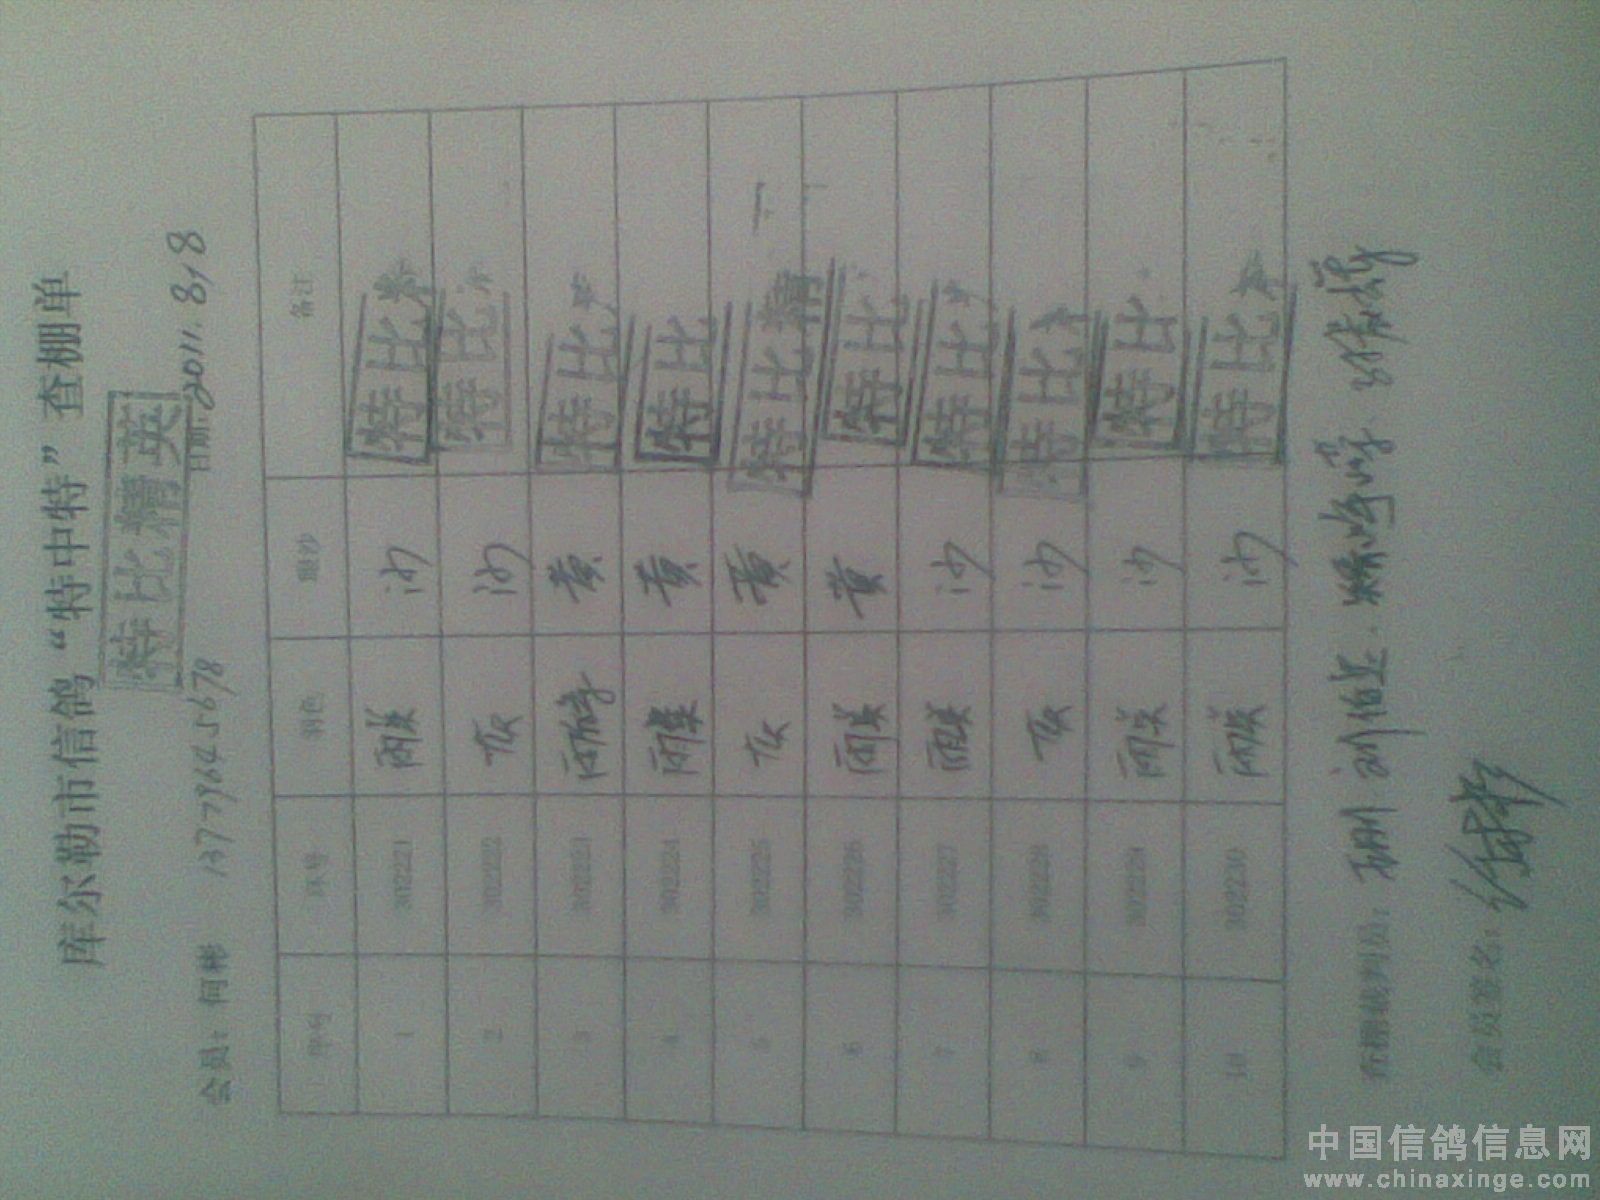 库尔勒市信鸽“特中特”查棚单
特比精英
会员：何彬 13779645678 日期：2011.8/8
序号 环号 羽色 眼沙 备注
1 302221 雨 沙 特比
2 302222 灰 沙 特比
3 302223 雨 黄 特比
4 302224 雨 黄 特比
5 302225 灰 黄 特比精
6 302226 雨 黄 特比
7 302227 雨 沙 特比
8 302228 灰 沙 特比
9 302229 雨 沙 特比
10 302230 雨 沙 特比
查棚裁判员：
会员签名：
中国信鸽信息网
www.chinaxinge.com